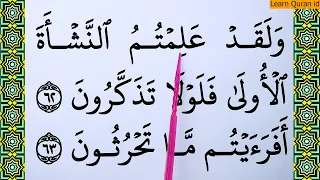 Learn Quran id
وَلَقَدْ عَلِمْتُمُ ٱلنَّشْأَةَ
ٱلْأُولَىٰ فَلَوْلَا تَذَكَّرُونَ ٦٢
أَفَرَءَيْتُم مَّا تَحْرُثُونَ ٦٣